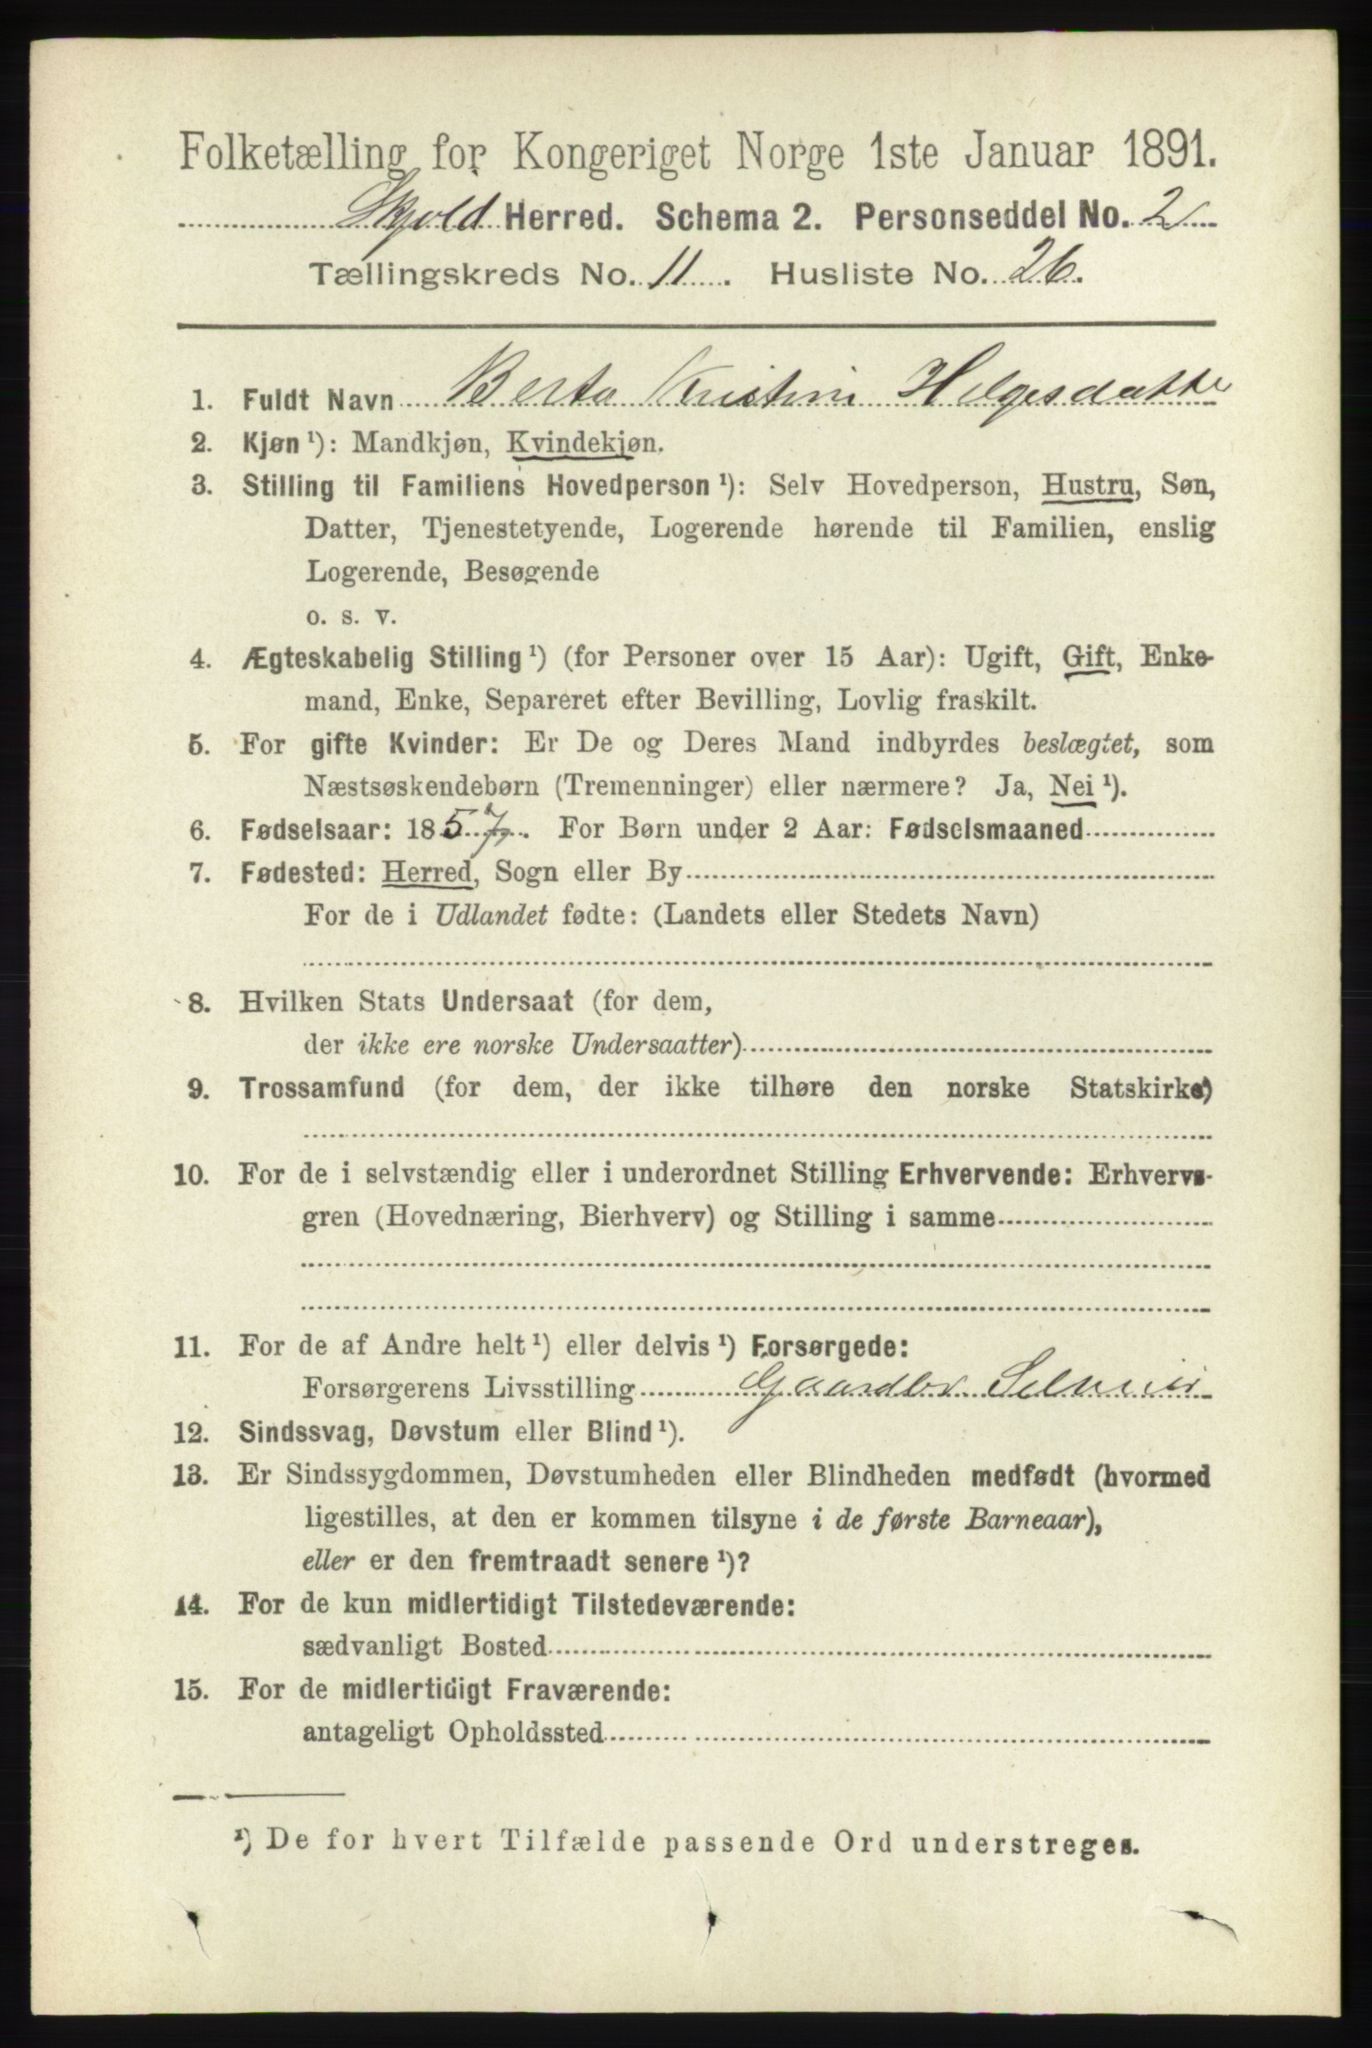 Folketælling for Kongeriget Norge 1ste Januar 1891.
Skjold Herred. Schema 2. Personseddel No. 2
Tællingskreds No. 11. Husliste No. 26.
1. Fuldt Navn Berta Kristine Helgesdatte
2. Kjøn ¹): Mandkjøn, Kvindekjøn.
3. Stilling til Familiens Hovedperson ¹): Selv Hovedperson, Hustru, Søn,
Datter, Tjenestetyende, Logerende hørende til Familien, enslig
Logerende, Besøgende
o. s. v.
4. Ægteskabelig Stilling ¹) (for Personer over 15 Aar): Ugift, Gift, Enke-
mand, Enke, Separeret efter Bevilling, Lovlig fraskilt.
5. For gifte Kvinder: Er De og Deres Mand indbyrdes beslægtet, som
Næstsøskendebørn (Tremenninger) eller nærmere? Ja, Nei ¹).
6. Fødselsaar: 1857. For Børn under 2 Aar: Fødselsmaaned
7. Fødested: Herred, Sogn eller By
For de i Udlandet fødte: (Landets eller Stedets Navn)
8. Hvilken Stats Undersaat (for dem,
der ikke ere norske Undersaatter)
9. Trossamfund (for dem, der ikke tilhøre den norske Statskirke)
10. For de i selvstændig eller i underordnet Stilling Erhvervende: Erhvervs-
gren (Hovednæring, Bierhverv) og Stilling i samme
11. For de af Andre helt ¹) eller delvis ¹) Forsørgede:
Forsørgerens Livsstilling Gaardbr. Selveier
12. Sindssvag, Døvstum eller Blind ¹).
13. Er Sindssygdommen, Døvstumheden eller Blindheden medfødt (hvormed
ligestilles, at den er kommen tilsyne i de første Barneaar),
eller er den fremtraadt senere ¹)?
14. For de kun midlertidigt Tilstedeværende:
sædvanligt Bosted
15. For de midlertidigt Fraværende:
antageligt Opholdssted
¹) De for hvert Tilfælde passende Ord understreges.